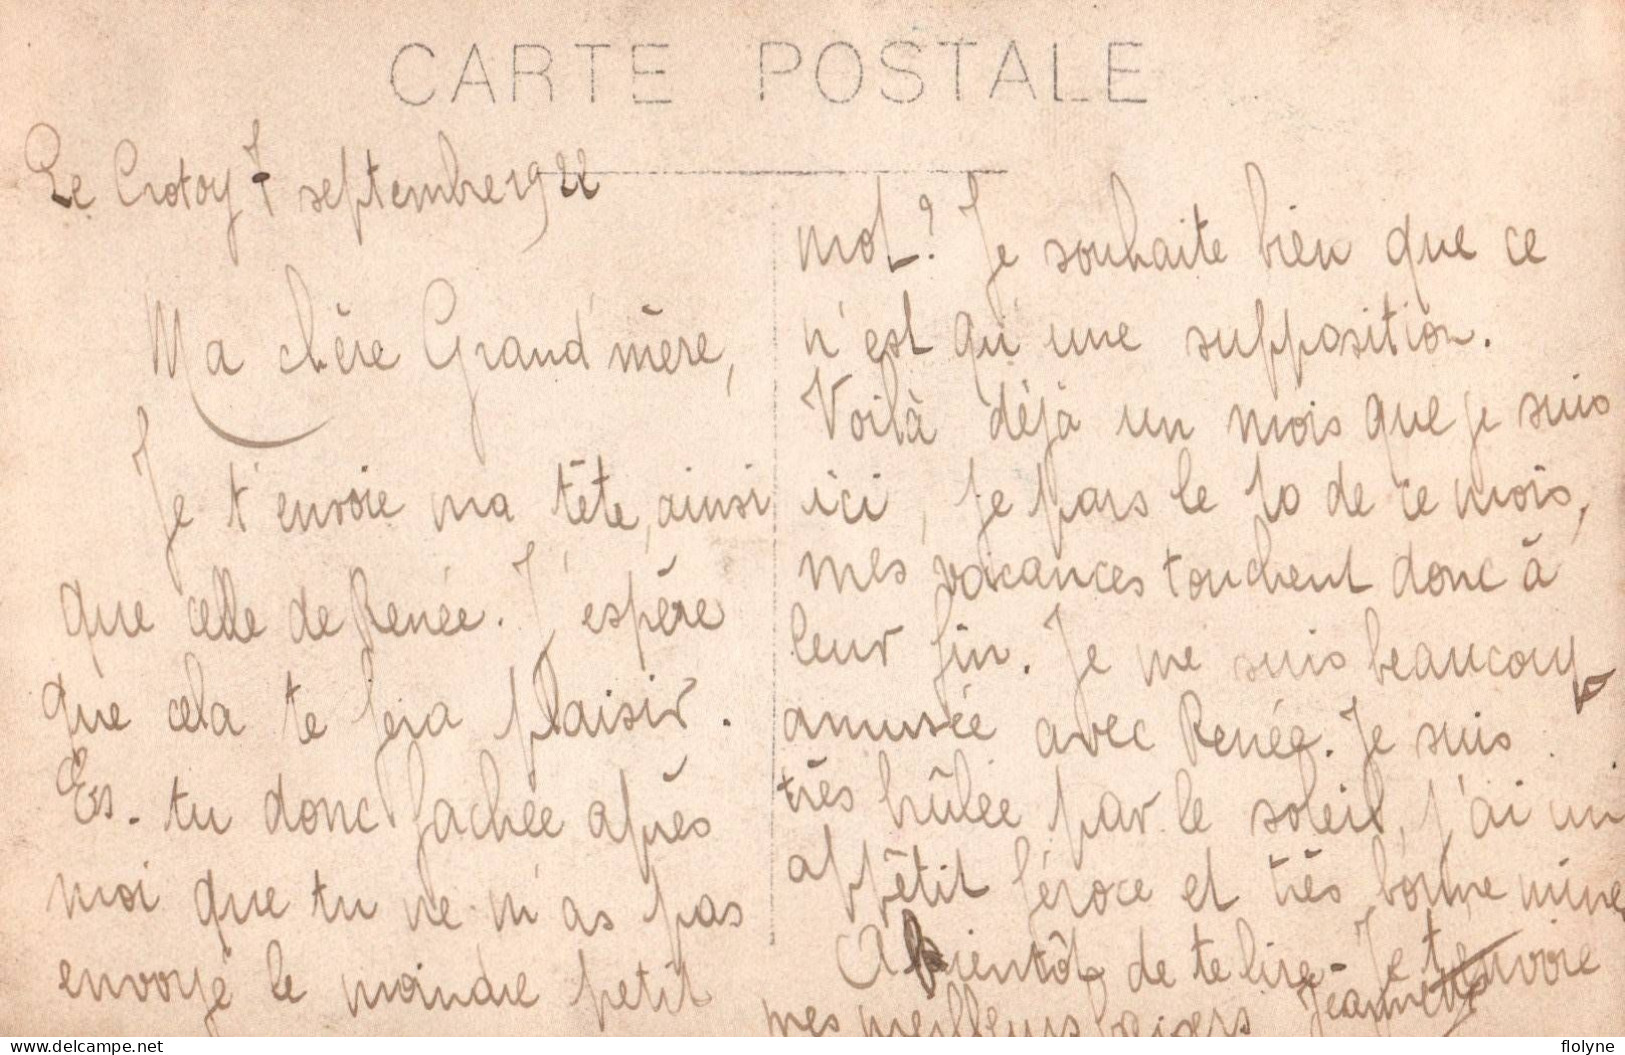 CARTE POSTALE
Le Crotoy 7 septembre 1922
Ma chère Grand'mère,
Je t'envoie ma tête, ainsi
que celle de Renée. J'espère
que cela te fera plaisir.
Es-tu donc fachée après
moi que tu ne m'as pas
envoyé le moindre petit
mot? Je souhaite bien que ce
n'est qu'une supposition.
Voilà déjà un mois que je suis
ici, je pars le 10 de ce mois,
mes vacances touchent donc à
leur fin. Je me suis beaucoup
amusée avec Renée. Je suis
très brûlée par le soleil, j'ai un
appêtit féroce et très bonne mine
A bientôt de te lire - Je t'envoie
mes meilleurs baisers Jeannette
delcampe.net
flolyne